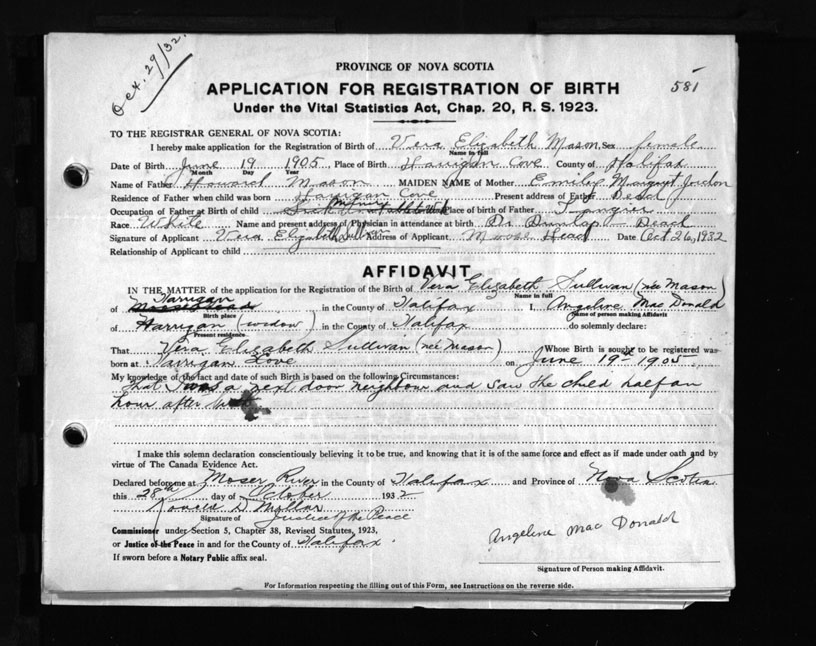 Oct. 29/32.
PROVINCE OF NOVA SCOTIA
APPLICATION FOR REGISTRATION OF BIRTH
581
Under the Vital Statistics Act, Chap. 20, R. S. 1923.
TO THE REGISTRAR GENERAL OF NOVA SCOTIA:
I hereby make application for the Registration of Birth of Vera Elizabeth Mason Sex female
Name in full
Date of Birth June 19 1905 Place of Birth Harrigan Cove County of Halifax
Month Day Year
Name of Father Howard Mason MAIDEN NAME of Mother Emily Margret Jordon
Residence of Father when child was born Harrigan Cove Present address of Father Dead
Occupation of Father at Birth of child Place of Birth of Father Tangier
Race White Name and present address of Physician in attendance at birth Dr Dunlap - Dead
Signature of Applicant Vera Elizabeth Sullivan Address of Applicant Moose Head Date Oct 26, 1932
Relationship of Applicant to child
AFFIDAVIT
IN THE MATTER of the application for the Registration of the Birth of Vera Elizabeth Sullivan (neé Mason)
Name in full
Harrigan
of in the County of Halifax I, Angeline Mac Donald
Birth place Name of person making Affidavit
of Harrigan (widow) in the County of Halifax do solemnly declare:
Present residence
That Vera Elizabeth Sullivan (neé Mason) Whose Birth is sought to be registered was
born at Harrigan Cove on June 19th 1905
My knowledge of the fact and date of such Birth is based on the following Circumstances:
That I was a next door neighbour and saw the child half an
hour after birth
I make this solemn declaration conscientiously believing it to be true, and knowing that it is of the same force and effect as if made under oath and by
virtue of The Canada Evidence Act.
Declared before me at Moser River in the County of Halifax and Province of Nova Scotia
this 28th day of October 1932
Signature of Justice of the Peace
Commissioner under Section 5, Chapter 38, Revised Statutes, 1923,
or Justice of the Peace in and for the County of Halifax.
If sworn before a Notary Public affix seal.
Angeline Mac Donald
Signature of Person making Affidavit.
For Information respecting the filling out of this Form, see Instructions on the reverse side.